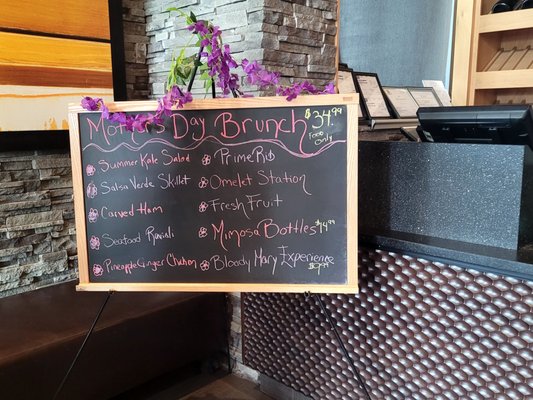 Mother's Day Brunch $34.99
Food Only
Summer Kale Salad
Salsa Verde Skillet
Carved Ham
Seafood Ravioli
Pineapple Ginger Chicken
Prime Rib
Omelet Station
Fresh Fruit
Mimosa Bottles $14.99
Bloody Mary Experience
$9.99